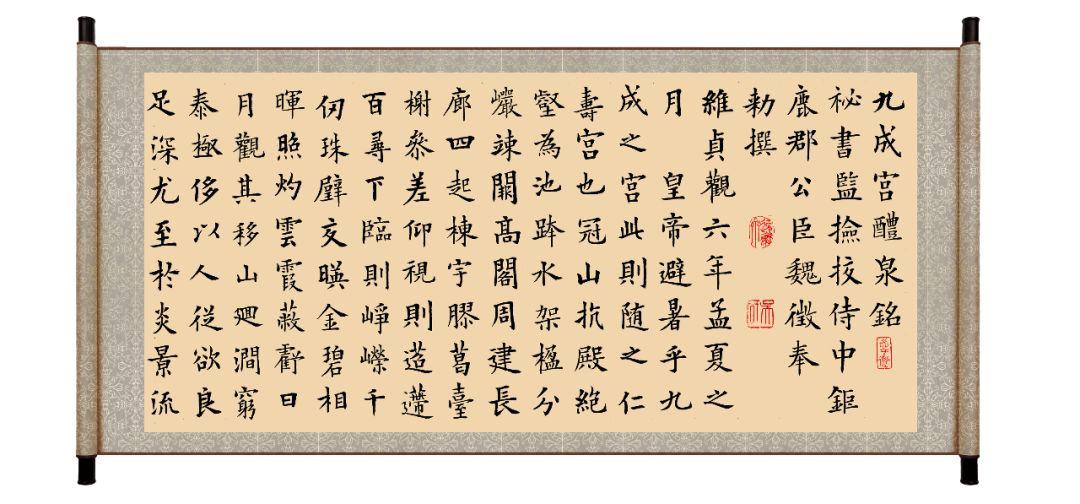 九成宫醴泉銘
祕書監撿挍侍中鉅
鹿郡公臣魏徵奉
勑撰
維貞觀六年孟夏之
月 皇帝避暑乎九
成之宫此則随之仁
壽宫也冠山抗殿絶
壑為池跨水架楹分
巖竦闕髙閣周建長
廊四起棟宇膠葛臺
榭叅差仰視則迢遰
百尋下臨則崢嶸千
仞珠壁交暎金碧相
暉照灼雲霞蔽虧日
月觀其移山迴澗窮
泰極侈以人従欲良
足深尤至於炎景流